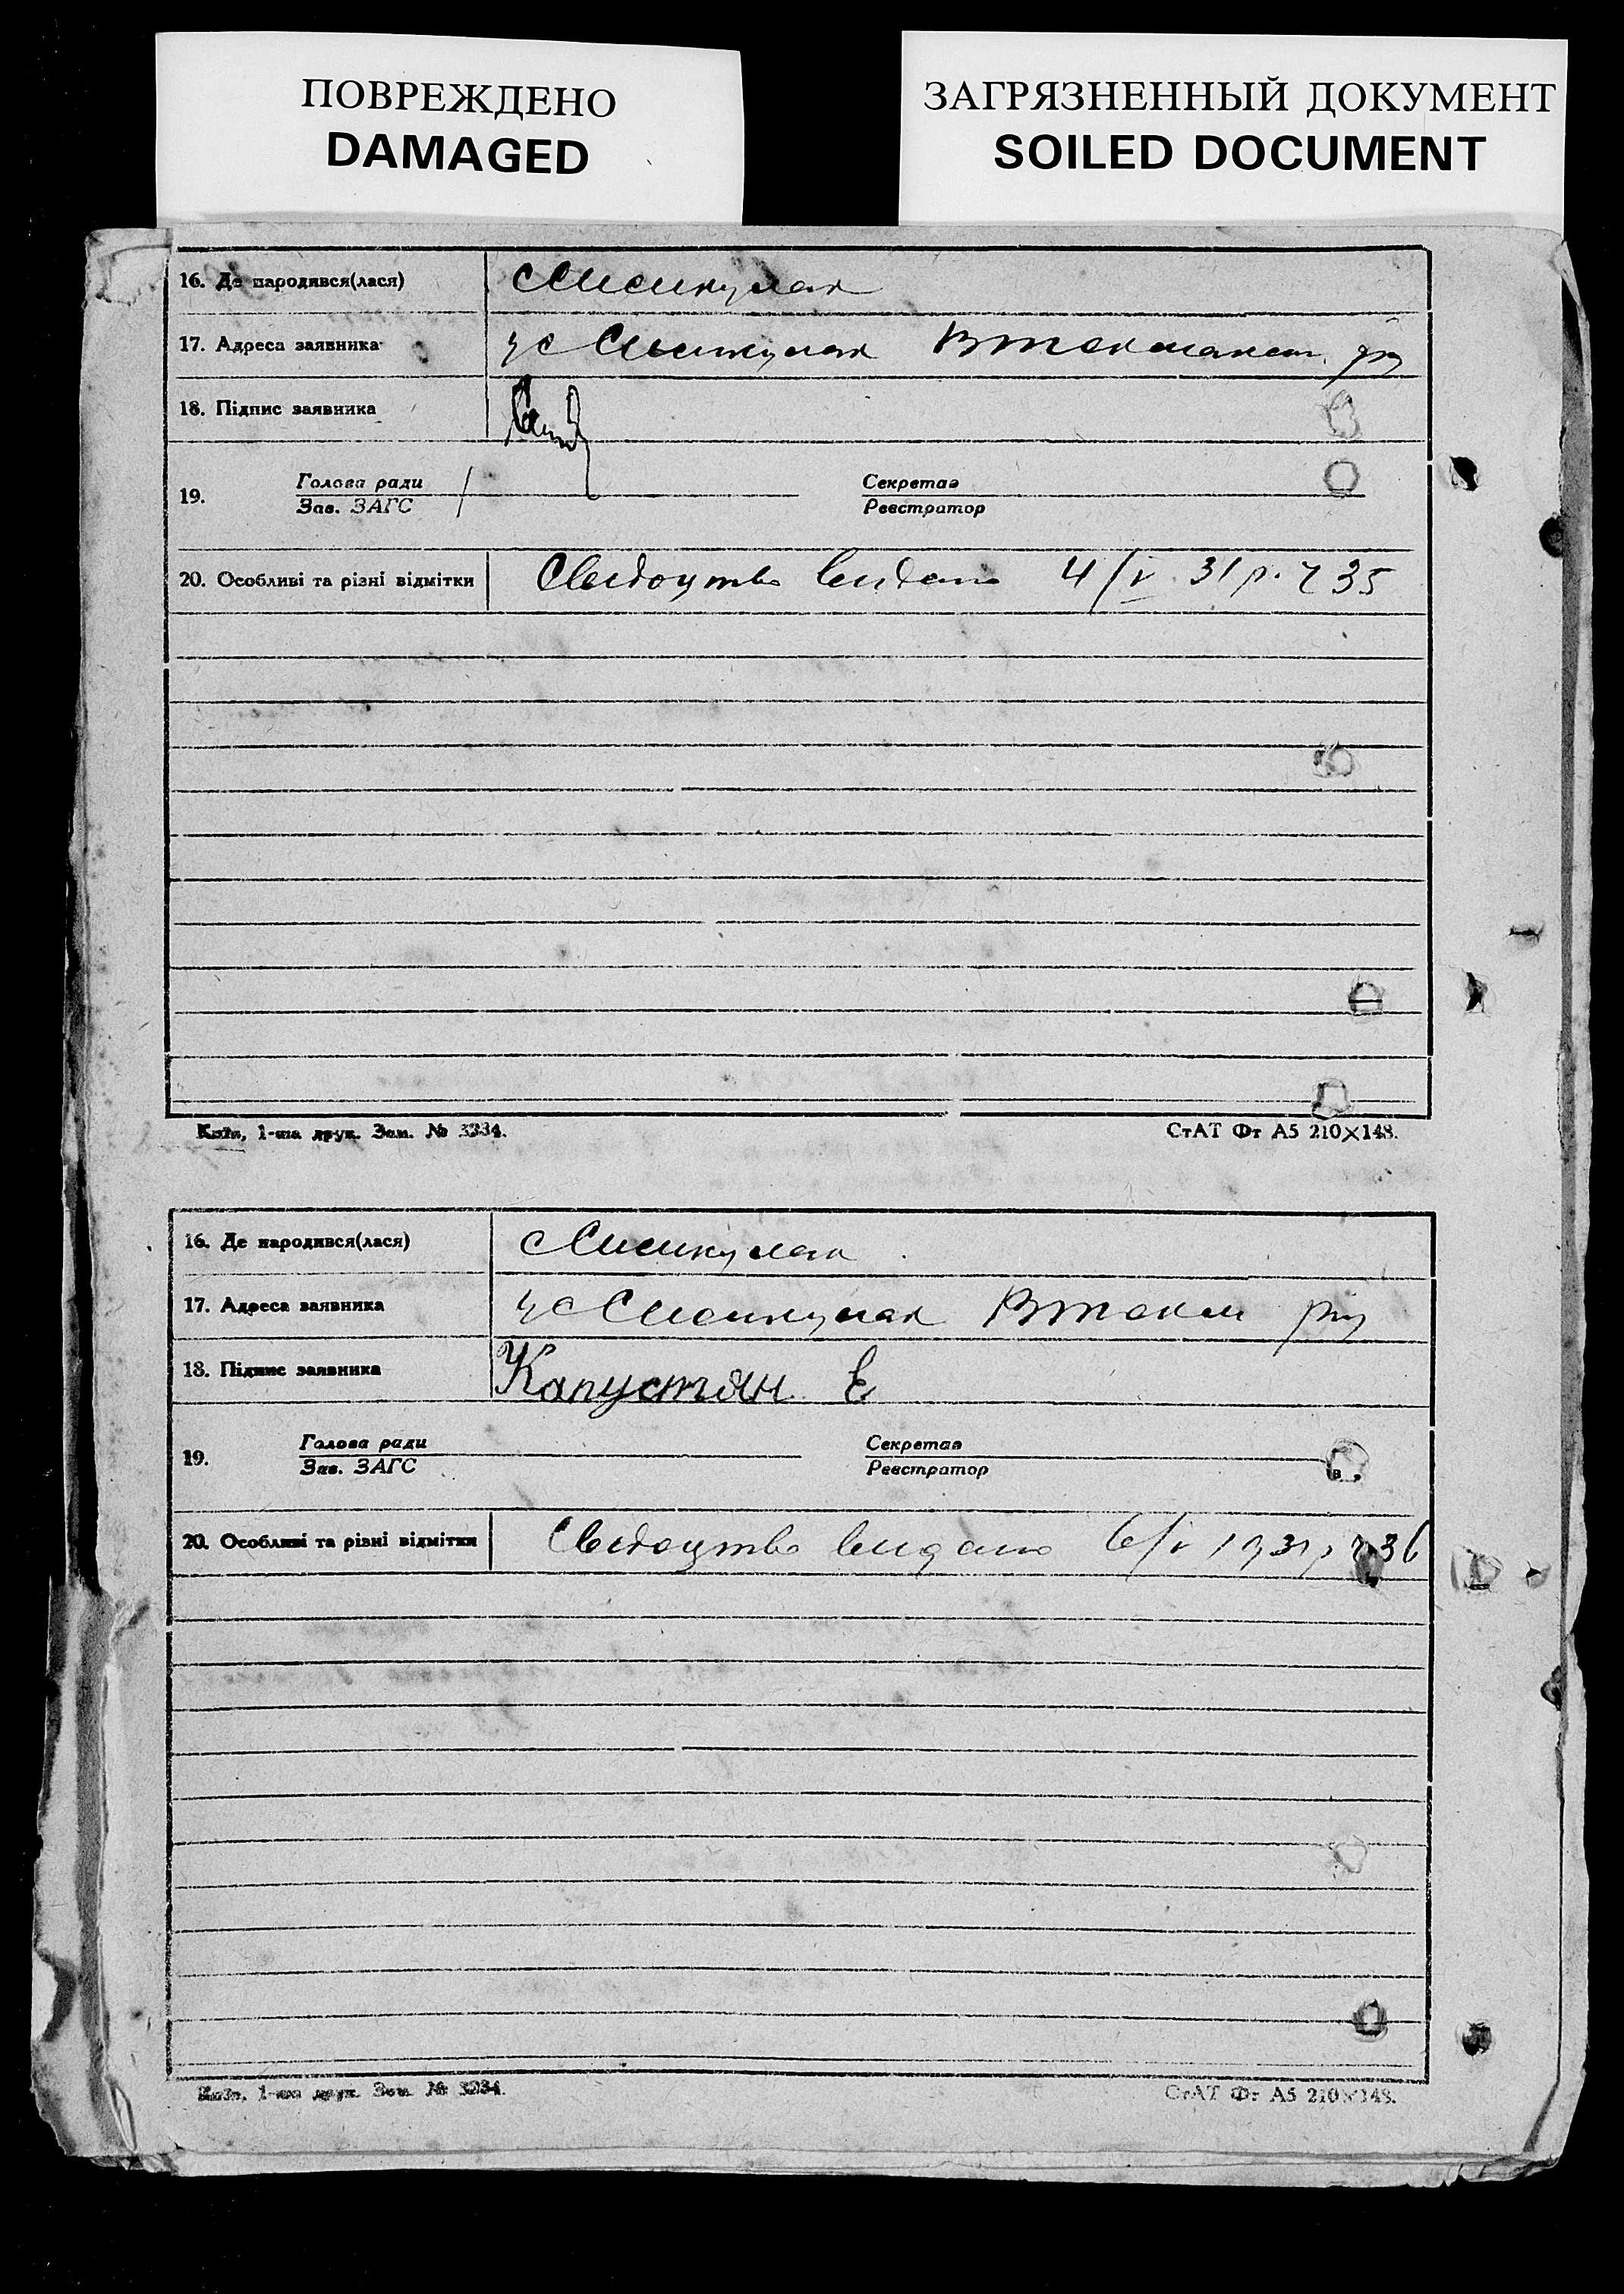 ПОВРЕЖДЕНО
DAMAGED
ЗАГРЯЗНЕННЫЙ ДОКУМЕНТ
SOILED DOCUMENT
16. Де народився(лася)
17. Адреса заявника
18. Підпис заявника
19. Голова ради Секретар
Зав. ЗАГС Реєстратор
20. Особливі та різні відмітки Свідоцтво видано 4/V 31 р. Ч 35
Київ, 1-ша друк. Зам. № 3234. СтАТ Фт А5 210×148.
16. Де народився(лася)
17. Адреса заявника
18. Підпис заявника Капустян Е
19. Голова ради Секретар
Зав. ЗАГС Реєстратор
20. Особливі та різні відмітки Свідоцтво видано 6/V 1931 р Ч 36
Київ, 1-ша друк. Зам. № 3234. СтАТ Фт А5 210×148.